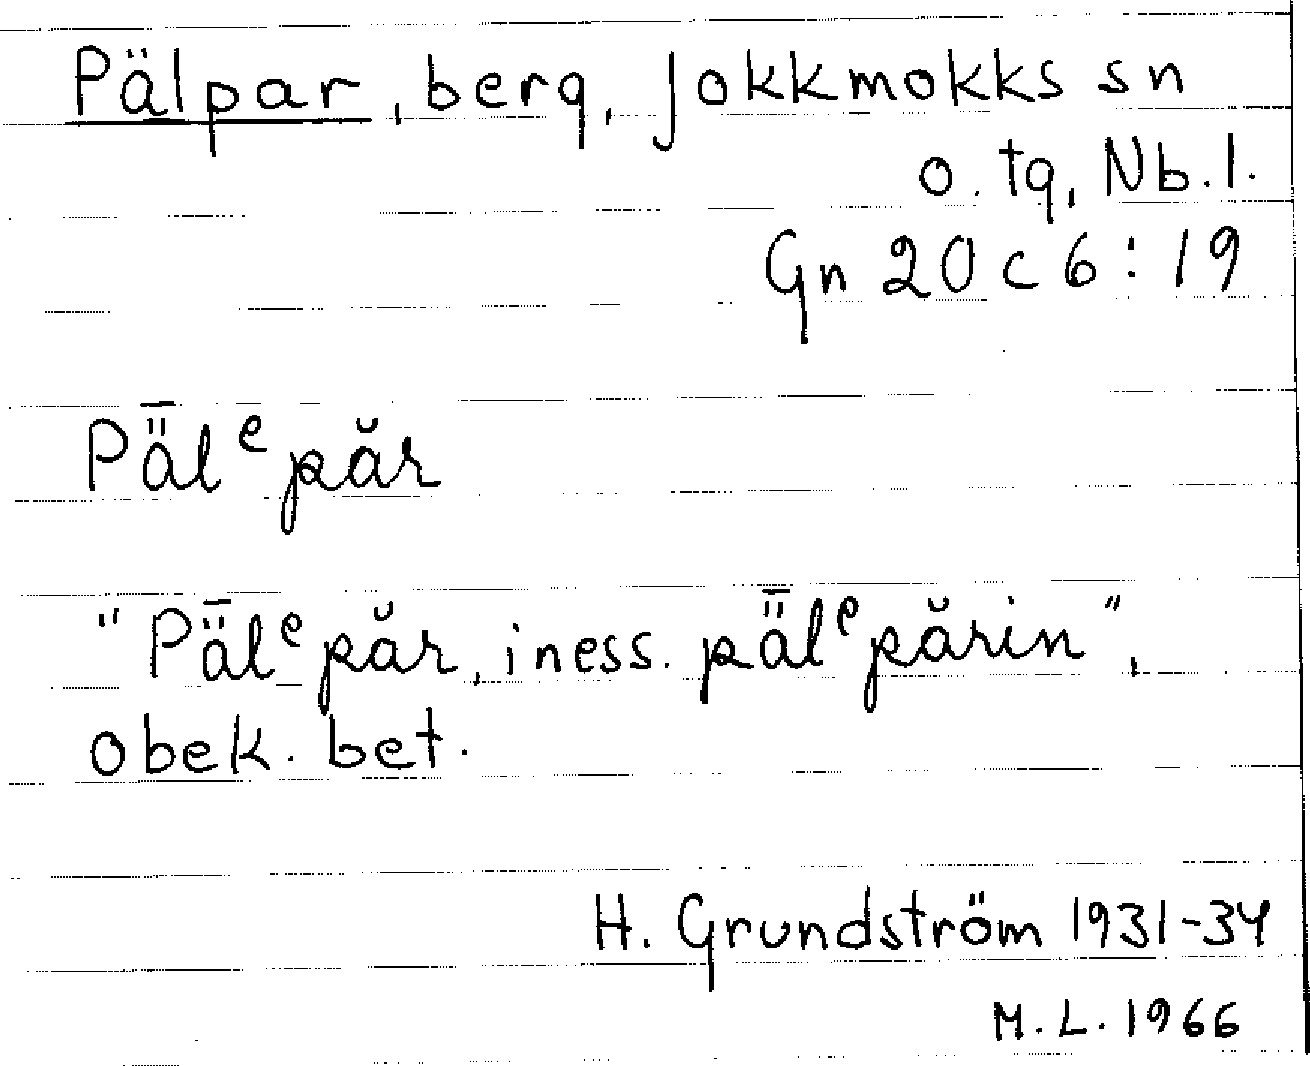 Pälpar, berg, Jokkmokks sn
o. tg, Nb.l.
Gn 20 c 6:19
Pǟlᵉpăr
"Pǟlᵉpăr, iness. pǟlᵉpărin",
obek. bet.
H. Grundström 1931-34
M.L. 1966